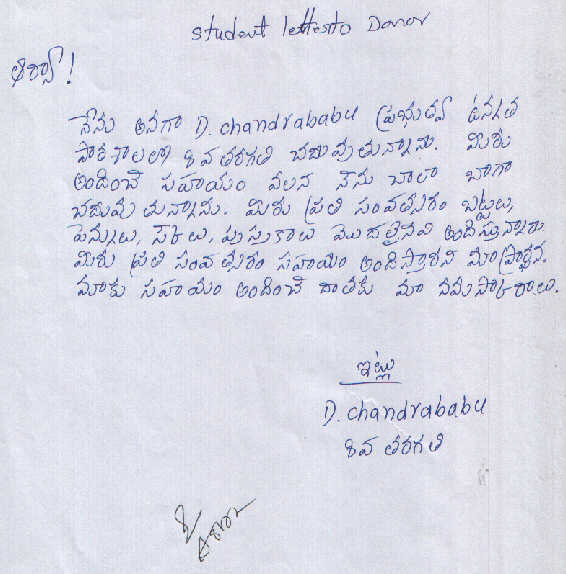 Student letter to Donor
ఆర్యా!
నేను అనగా D. chandrababu ప్రభుత్వ ఉన్నత
పాఠశాలలో 8వ తరగతి చదువుతున్నాను. మీరు
అందించే సహాయం వలన నేను చాలా బాగా
చదువుతున్నాను. మీరు ప్రతి సంవత్సరం బట్టలు,
పెన్నులు, పుస్తకాలు మొదలైనవి అందిస్తున్నారు
మీరు ప్రతి సంవత్సరం సహాయం అందిస్తారని మా ప్రార్థన.
మాకు సహాయం అందించే దాతకు మా నమస్కారాలు.
ఇట్లు
D. chandrababu
8వ తరగతి